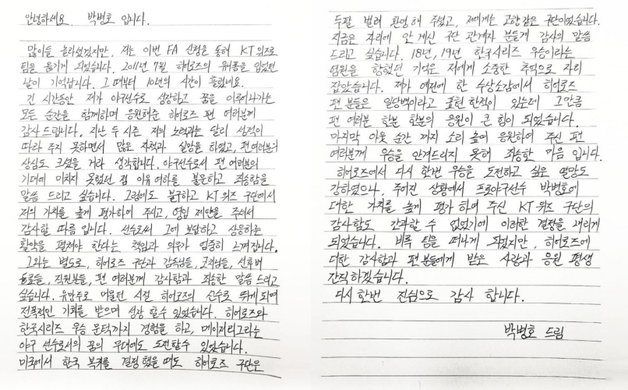 안녕하세요. 박병호 입니다.
많이들 놀라셨겠지만, 저는 이번 FA 신청을 통해 KT위즈로
팀을 옮기게 되었습니다. 2011년 7월 히어로즈의 유니폼을 입었던
날이 기억납니다. 그 때부터 10년의 시간이 흘렀네요.
긴 시간동안 제가 야구선수로 성장하고 꿈을 이루어나가는
모든 순간을 함께하며 응원해주신 히어로즈 팬 여러분께
감사드립니다. 지난 두 시즌 저의 노력과는 달리 성적이
따라 주지 못하면서 많은 추측과 실망을 하셨고, 팬여러분의
상심도 크셨을 거라 생각합니다. 야구선수로서 팬 여러분의
기대에 미치지 못했던 점 이유여하를 불문하고 죄송함을
말씀 드리고 싶습니다. 그럼에도 불구하고 KT위즈 구단에서
저의 가치를 높게 평가하여 주고, 영입 제안을 주셔서
감사할 따름 입니다. 선수로서 그에 보답하고 상응하는
활약을 펼쳐야 한다는 책임과 의무가 엄중히 느껴집니다.
그와는 별도로, 히어로즈 구단과 감독님들, 코치님들, 선후배
동료들, 직원분들, 팬 여러분께 감사함과 죄송한 말씀 드리고
싶습니다. 유망주로 머물던 시절 히어로즈의 선수로 뛰게 되며
전폭적인 기회를 받으며 성장 할수 있었습니다. 히어로즈와
한국시리즈 우승 문턱까지 경험을 하고, 메이저리그라는
야구 선수로서의 꿈의 무대에도 도전할수 있었습니다.
미국에서 한국 복귀를 결정 했을 때도 히어로즈 구단은
두팔 벌려 환영해 주셨고, 저에게는 고향 같은 구단이었습니다.
지금은 자리에 안 계신 구단 관계자 분들께 감사의 말씀
드리고 싶습니다. 18년, 19년 한국시리즈 우승이라는
염원을 함께했던 기억은 저에게 소중한 추억으로 자리
잡았습니다. 제가 예전에 한 수상소감에서 히어로즈
팬 분들은 일당백이라고 표현 한적이 있는데 그만큼
팬 여러분 한분 한분의 응원이 큰 힘이 되었습니다.
마지막 아웃 순간 까지 소리 높여 응원하여 주신 팬
여러분께 우승을 안겨드리지 못해 죄송한 마음 입니다.
히어로즈에서 다시 한번 우승을 도전하고 싶은 열망도
강하였으나. 주어진 상황에서 프로야구선수 박병호에
대한 가치를 높게 평가 하여 주신 KT위즈 구단의
감사함도 간과할 수 없었기에 이러한 결정을 내리게
되었습니다. 비록 팀을 떠나게 되었지만, 히어로즈에
대한 감사함과 팬 분들에게 받은 사랑과 응원 평생
간직하겠습니다.
다시 한번 진심으로 감사 합니다.
박병호 드림